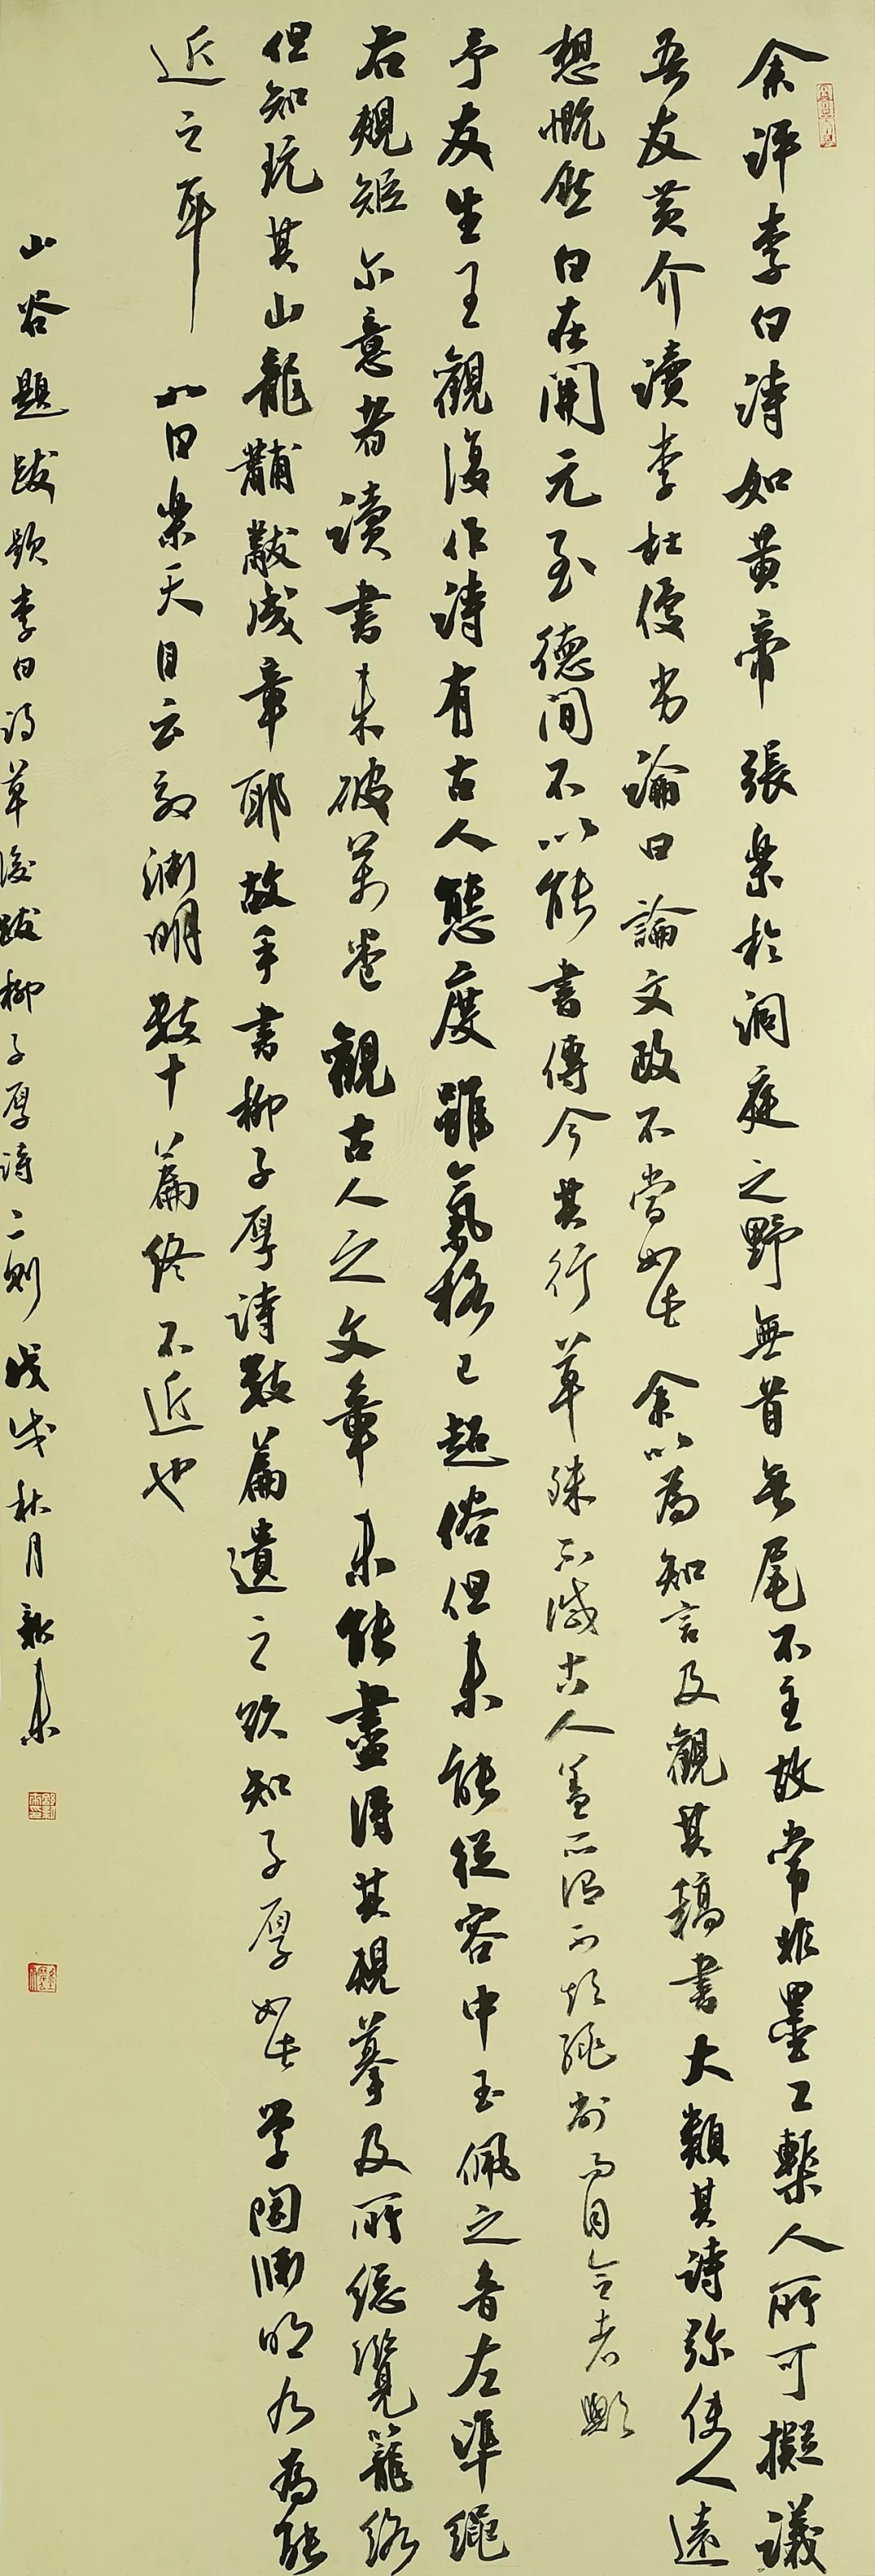 余評李白詩如黃帝張樂於洞庭之野無首無尾不主故常非墨工槧人所可擬議
吾友黃介讀李杜優劣論曰論文政不當如此余以為知言及觀其稿書大類其詩彌使人遠
想慨然白在開元至德間不以能書傳今其行草殊不減古人蓋所謂不煩繩削而自合者歟
予友生王觀復作詩有古人態度雖氣格已超俗但未能從容中玉佩之音左準繩
右規矩尔意者讀書未破萬卷觀古人之文章未能盡得其規摹及所總覽籠絡
但知玩其山龍黼黻成章耶故手書柳子厚詩數篇遺之欲知子厚如此學陶淵明乃為能
近之耳如白樂天自云效淵明數十篇終不近也
山谷題跋題李白詩草後跋柳子厚詩二則戊戌秋月新来